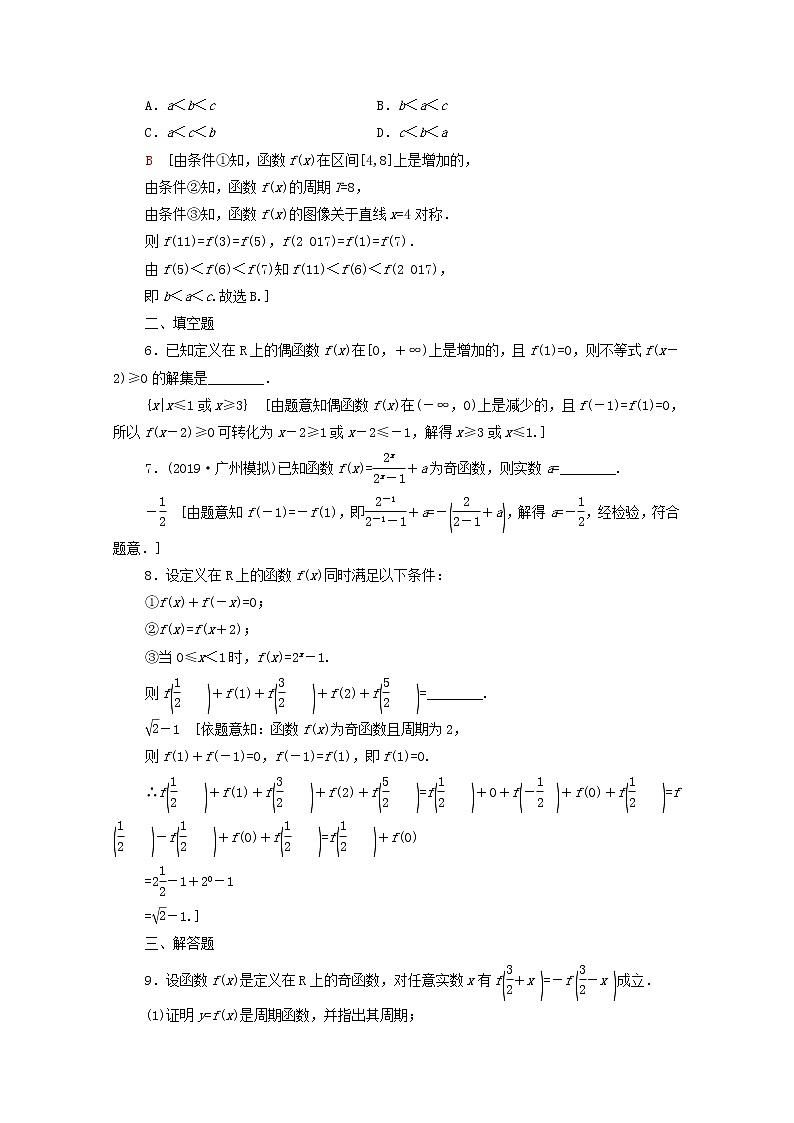 A．a＜b＜c　　B．b＜a＜c
C．a＜c＜b　　D．c＜b＜a
B　[由条件①知,函数f(x)在区间[4,8]上是增加的,
由条件②知,函数f(x)的周期T=8,
由条件③知,函数f(x)的图像关于直线x=4对称.
则f(11)=f(3)=f(5),f(2 017)=f(1)=f(7).
由f(5)＜f(6)＜f(7)知f(11)＜f(6)＜f(2 017),
即b＜a＜c.故选B.]
二、填空题
6．已知定义在R上的偶函数f(x)在[0,+∞)上是增加的,且f(1)=0,则不等式f(x－
2)≥0的解集是________.
{x|x≤1或x≥3}　[由题意知偶函数f(x)在(－∞,0)上是减少的,且f(－1)=f(1)=0,
所以f(x－2)≥0可转化为x－2≥1或x－2≤－1,解得x≥3或x≤1.]
7．(2019·广州模拟)已知函数f(x)=\frac{2^x}{2^x－1}+a为奇函数,则实数a=________.
－\frac{1}{2}　[由题意知f(－1)=－f(1),即\frac{2^{－1}}{2^{－1}－1}+a=－(\frac{2}{2－1}+a),解得a=－\frac{1}{2},经检验,符合
题意.]
8．设定义在R上的函数f(x)同时满足以下条件:
①f(x)+f(－x)=0;
②f(x)=f(x+2);
③当0≤x＜1时,f(x)=2^x－1.
则f(\frac{1}{2})+f(1)+f(\frac{3}{2})+f(2)+f(\frac{5}{2})=________.
√2－1　[依题意知:函数f(x)为奇函数且周期为2,
则f(1)+f(－1)=0,f(－1)=f(1),即f(1)=0.
∴f(\frac{1}{2})+f(1)+f(\frac{3}{2})+f(2)+f(\frac{5}{2})=f(\frac{1}{2})+0+f(－\frac{1}{2})+f(0)+f(\frac{1}{2})=f
(\frac{1}{2})－f(\frac{1}{2})+f(0)+f(\frac{1}{2})=f(\frac{1}{2})+f(0)
=2\frac{1}{2}－1+2^0－1
=√2－1.]
三、解答题
9．设函数f(x)是定义在R上的奇函数,对任意实数x有f(\frac{3}{2}+x)=－f(\frac{3}{2}－x)成立.
(1)证明y=f(x)是周期函数,并指出其周期;